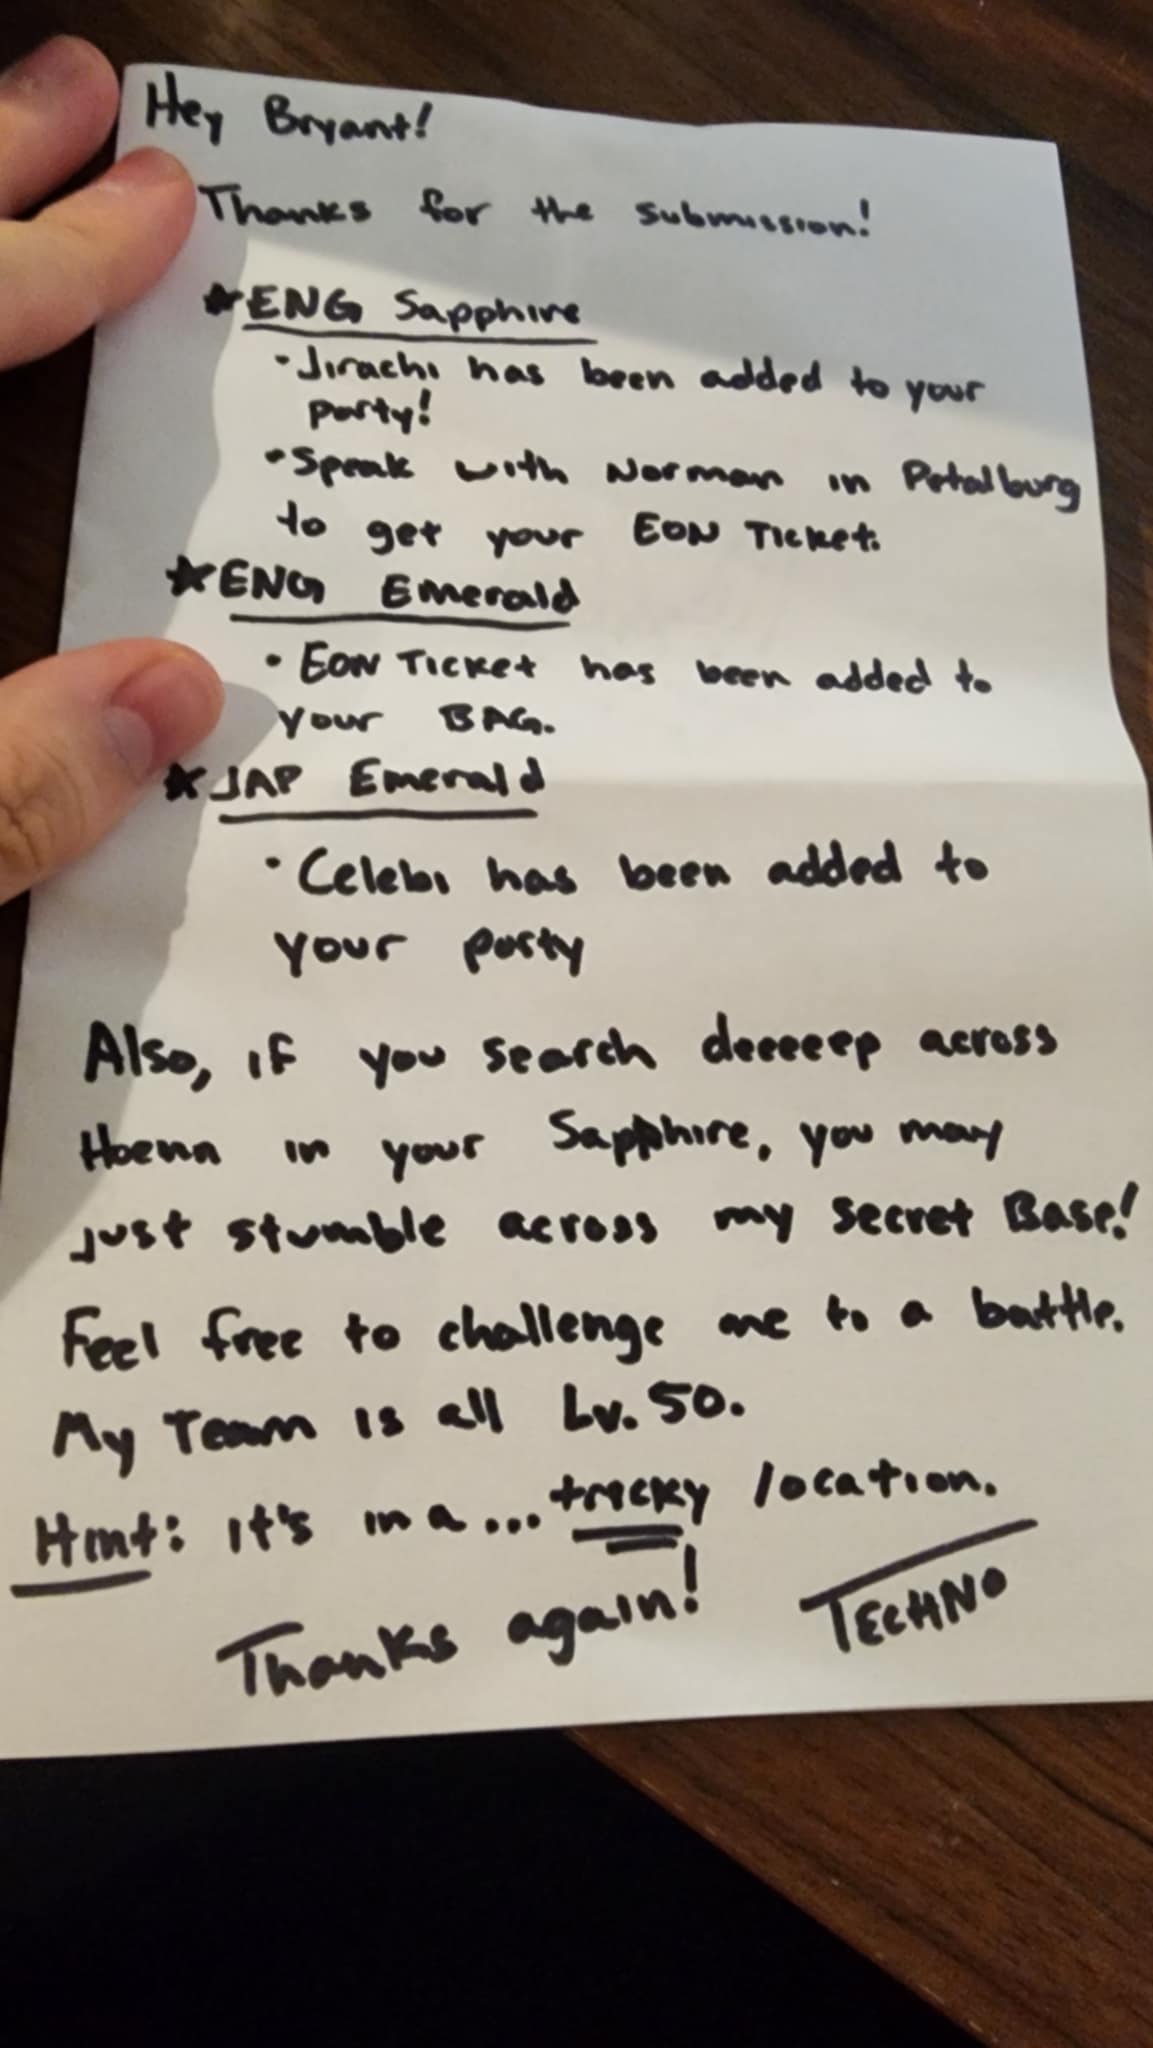 Hey Bryant!
Thanks for the submission!
★ENG Sapphire
•Jirachi has been added to your
party!
•Speak with Norman in Petalburg
to get your EON TICKET.
★ENG Emerald
• EON TICKET has been added to
your BAG.
★JAP Emerald
•Celebi has been added to
your party
Also, if you search deeeeep across
Hoenn in your Sapphire, you may
just stumble across my Secret Base!
Feel free to challenge me to a battle.
My Team is all Lv. 50.
Hint: it's in a... tricky location.
Thanks again!
TECHNO